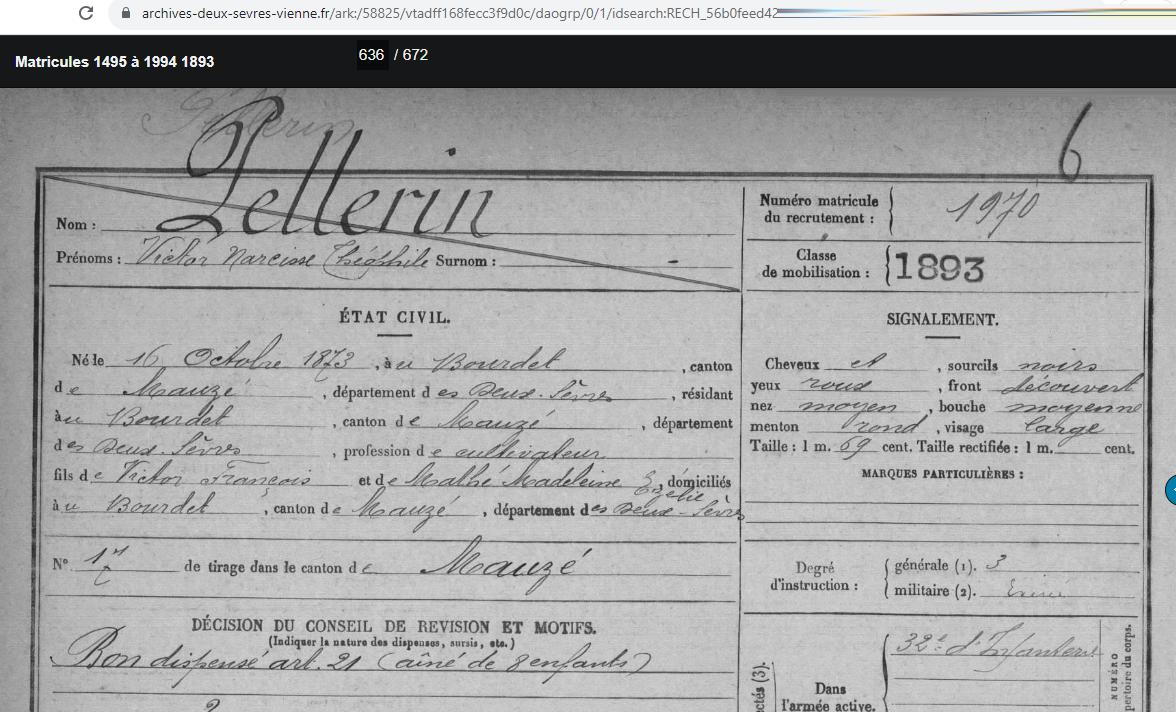 archives-deux-sevres-vienne.fr/ark:/58825/vtadff168fecc3f9d0c/daogrp/0/1/idsearch:RECH_56b0feed42
Matricules 1495 à 1994 1893
636 / 672
Pellerin
6
Nom : Pellerin
Prénoms : Victor Narcisse Théophile Surnom : -
Numéro matricule du recrutement : 1970
Classe de mobilisation : 1893
ÉTAT CIVIL.
Né le 16 Octobre 1873, à u Bourdet, canton
de Mauzé, département des Deux-Sèvres, résidant
à u Bourdet, canton de Mauzé, département
des Deux-Sèvres, profession de cultivateur
fils de Victor François et de Mathé Madeleine Ezélie, domiciliés
à u Bourdet, canton de Mauzé, département des Deux-Sèvres
N° 17 de tirage dans le canton de Mauzé
DÉCISION DU CONSEIL DE REVISION ET MOTIFS.
(Indiquer la nature des dispenses, sursis, etc.)
Bon dispensé art. 21 (aîné de 8 enfants)
SIGNALEMENT.
Cheveux et, sourcils noirs
yeux roux, front découvert
nez moyen, bouche moyenne
menton rond, visage large
Taille : 1 m. 69 cent. Taille rectifiée : 1 m. cent.
MARQUES PARTICULIÈRES :
Degré d'instruction :
générale (1). 3
militaire (2).
Dans l'armée active.
32e d'Infanterie
NUMÉRO